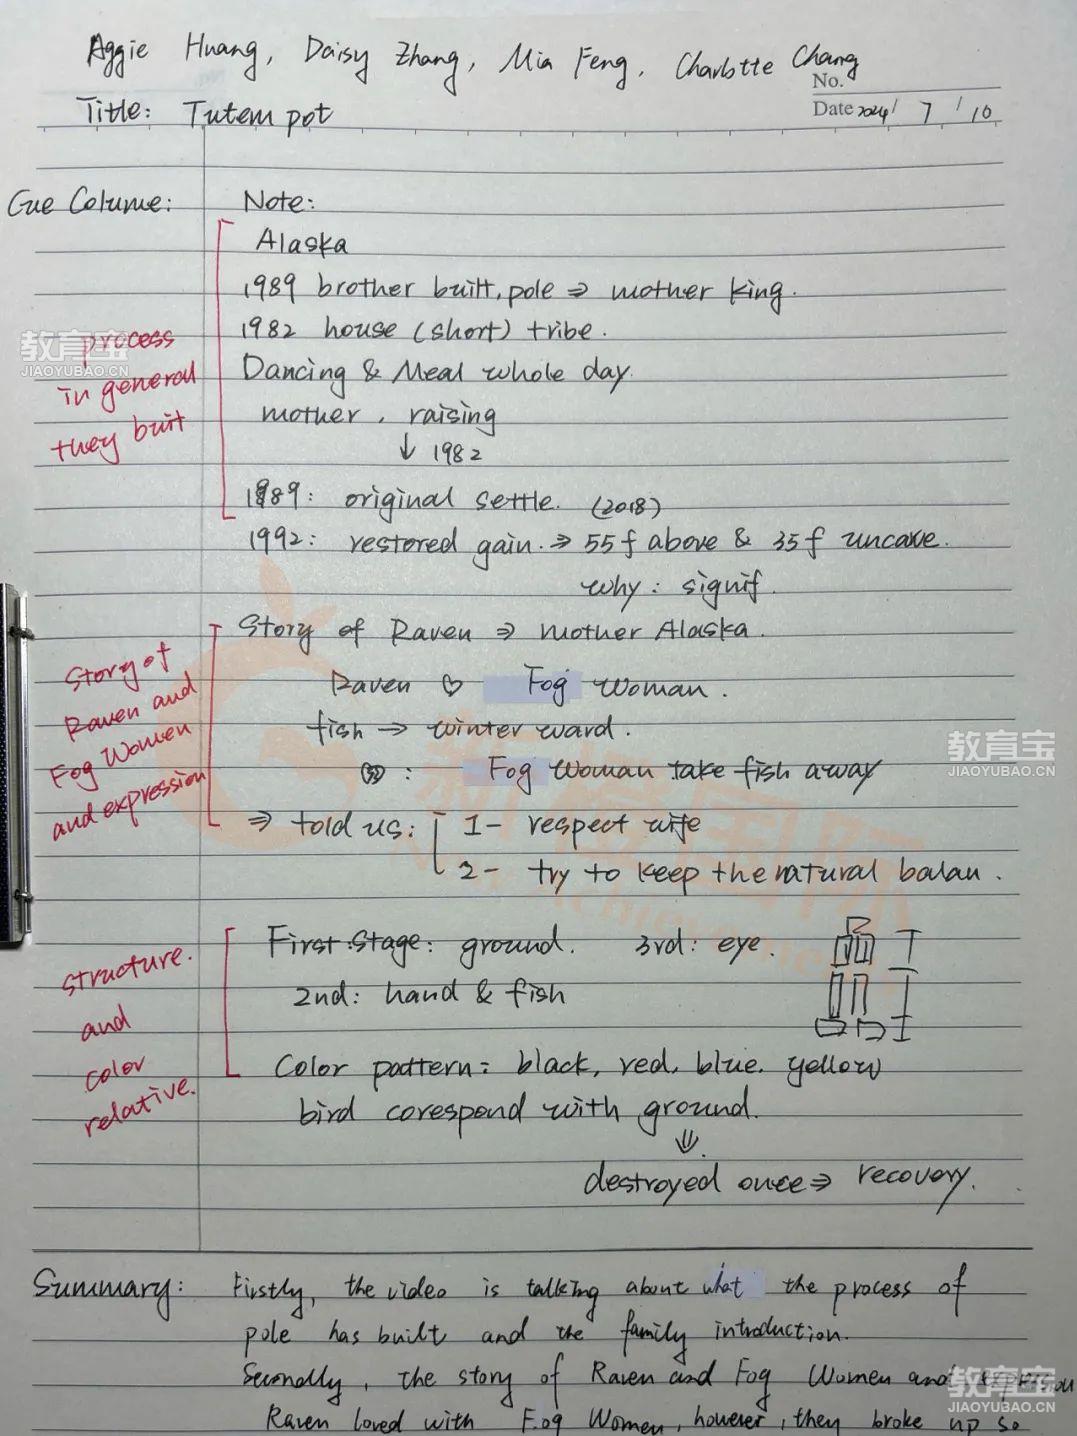 Aggie Huang, Daisy Zhang, Mia Feng, Charlotte Chang
No.
Title: Tutem pot
Date 2024/ 7 / 10
Cue Colume:
Note:
Alaska
1989 brother built, pole ⇒ mother king.
1982 house (short) tribe.
process
in general
they built
Dancing & Meal whole day.
mother, raising
↓ 1982
1989: original settle. (2018)
1992: restored gain. ⇒ 55f above & 35f uncave.
why: signif.
Story of Raven ⇒ mother Alaska.
Story of
Raven and
Fog Women
and expression
Raven ♡ Fog Woman.
fish → winter ward.
: Fog Woman take fish away
⇒ told us: 1- respect wife
2- try to keep the natural balan.
structure.
and
color
relative.
First Stage: ground. 3rd: eye.
2nd: hand & fish
Color pattern: black, red, blue. yellow
bird corespond with ground.
⇓
destroyed once ⇒ recovery.
Summary: Firstly, the video is talking about what the process of
pole has built and the family introduction.
Secondly, the story of Raven and Fog Women and expression
Raven loved with Fog Women, however, they broke up so
教育宝
JIAOYUBAO.CN
教育宝
JIAOYUBAO.CN
教育宝
JIAOYUBAO.CN